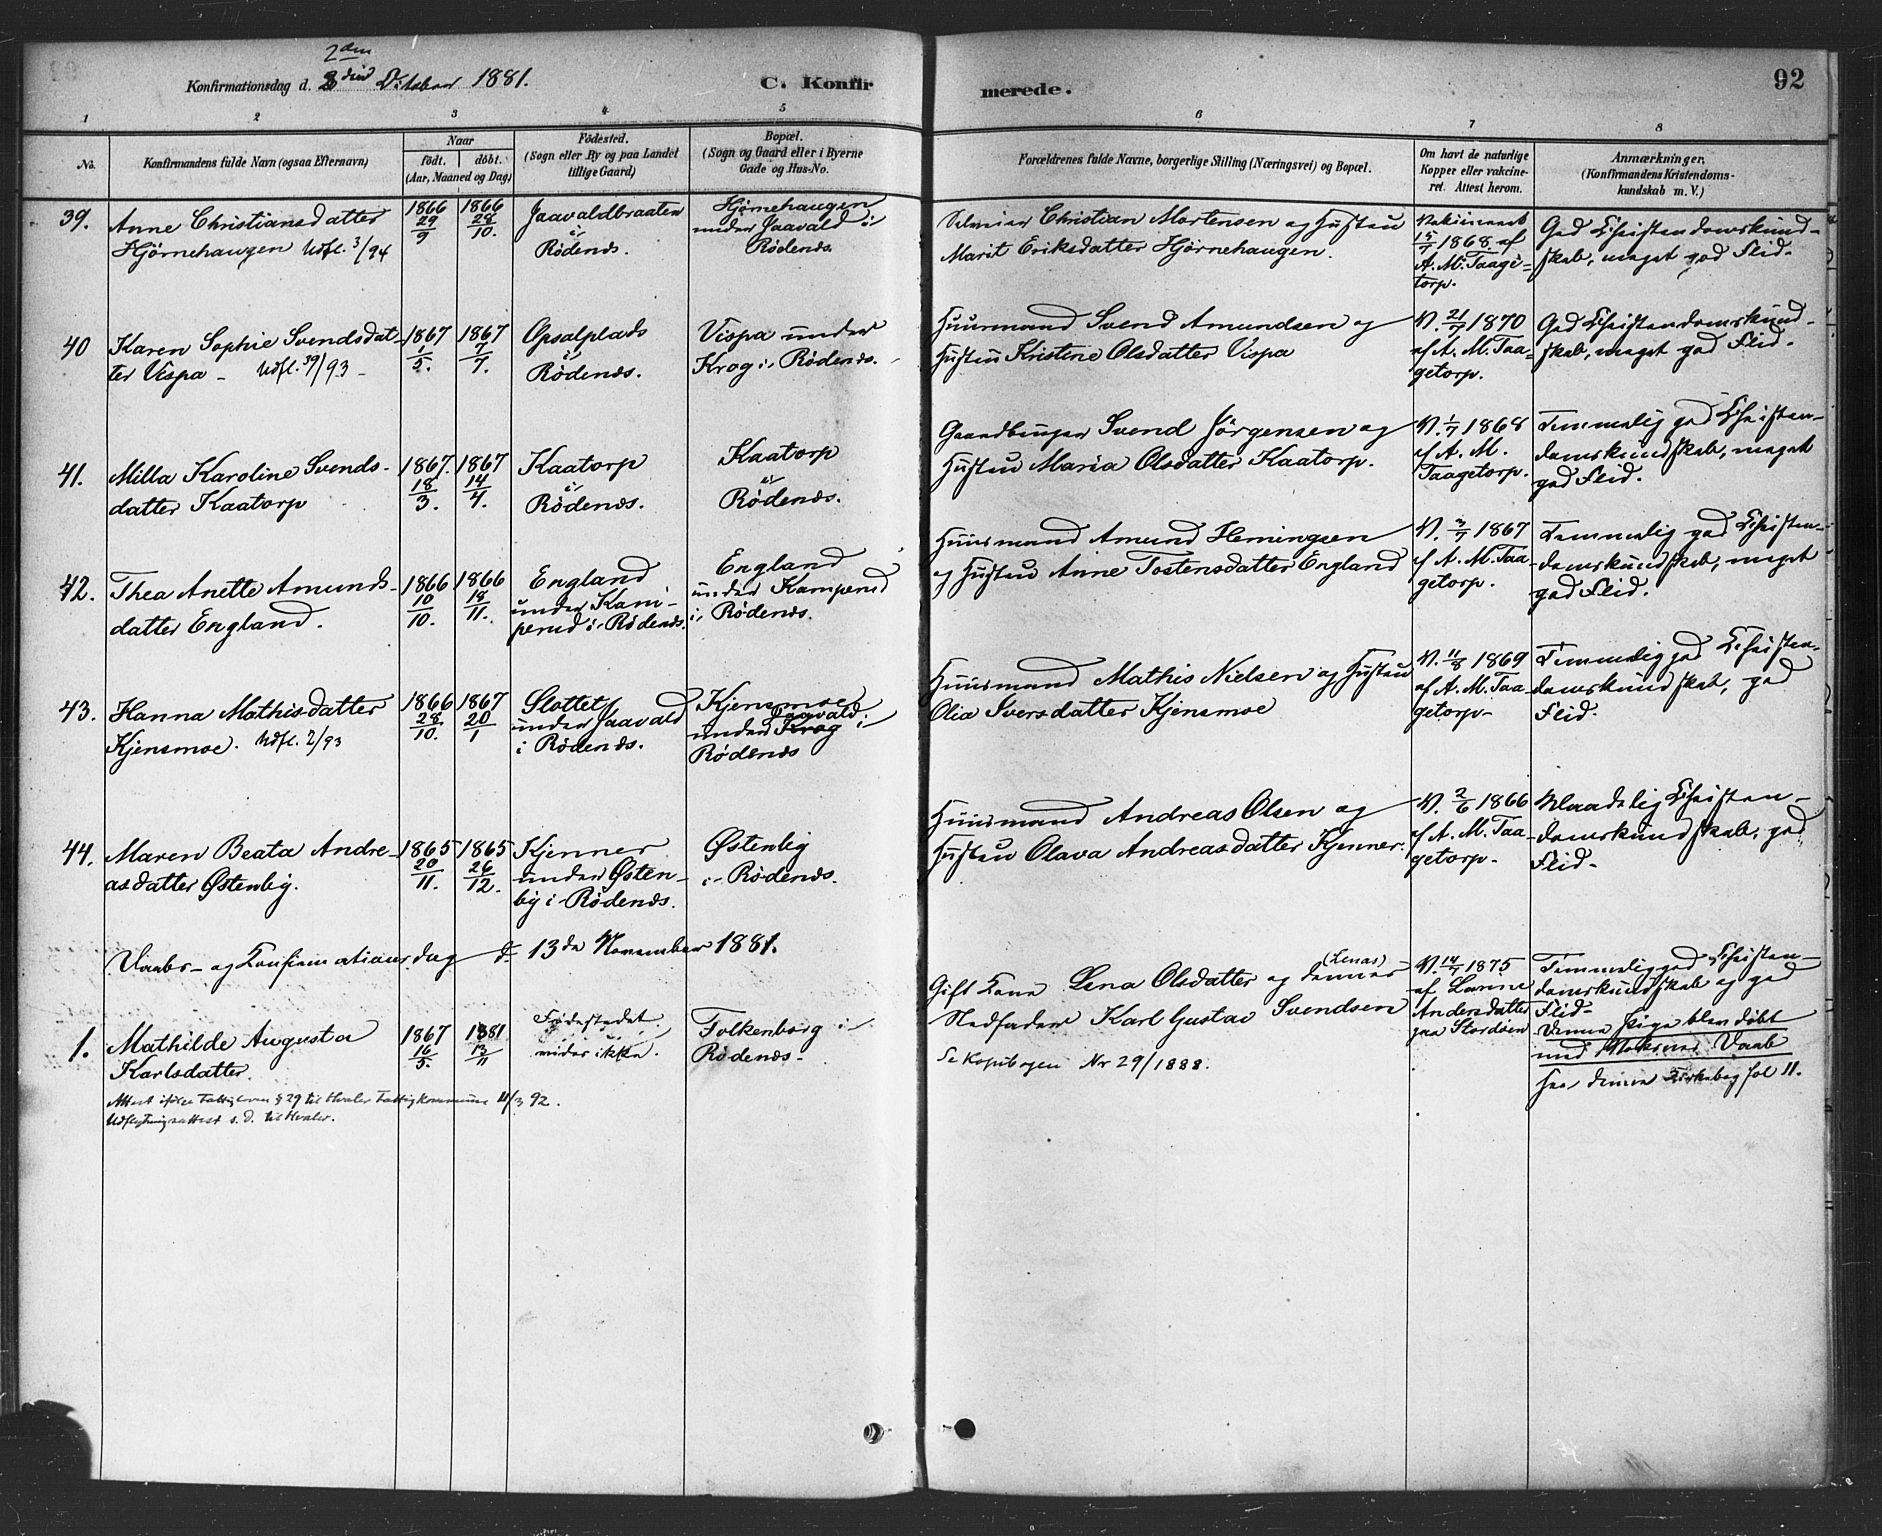 2den
Konfirmationsdag d. October 1881.
C. Konfir
merede.
92
1 2 3 4 5 6 7 8
No.
Konfirmandens fulde Navn (ogsaa Efternavn)
Naar
født. døbt.
(Aar, Maaned og Dag)
Fødested.
(Sogn eller By og paa Landet
tillige Gaard)
Bopæl.
(Sogn og Gaard eller i Byerne
Gade og Hus-No.
Forældrenes fulde Navne, borgerlige Stilling (Næringsvei) og Bopæl.
Om havt de naturlige
Kopper eller vakcine-
ret. Attest herom.
Anmærkninger.
(Konfirmandens Kristendoms-
kundskab m. V.)
39.
Anne Christiansdatter
Hjørnehaugen Udfl. 3/94
1866 29/9
1866 28/10.
Jaavaldbraaten
i
Rødenæs.
Hjørnehaugen
under Jaavald i
Rødenæs.
Selveier Christian Mortensen og Hustru
Marit Eriksdatter Hjørnehaugen.
Vakcineret
15/7 1868 af
A. M. Taage-
torp.
God Christendomskund-
skab, meget god Flid.
40
Karen Sophie Svendsdat-
ter Vispa - Udfl. 39/93 -
1867 1/5.
1867 7/7.
Opsalplads
i
Rødenæs.
Vispa under
Krog i Rødenæs.
Huusmand Svend Amundsen og
Hustru Kristine Olsdatter Vispa
V. 21/7 1870
af A. M. Taa-
getorp.
God Christendomskund-
skab, meget god Flid.
41.
Milla Karoline Svends-
datter Kaatorp
1867. 18/3.
1867 14/4.
Kaatorp
i
Rødenæs.
Kaatorp
i
Rødenæs.
Gaardbruger Svend Jørgensen og
Hustru Maria Olsdatter Kaatorp.
V. 1/7 1868
af A. M.
Taagetorp.
Temmelig god Christen-
domskundskab, meget
god Flid.
42.
Thea Anette Amunds-
datter England.
1866 10/10.
1866 18/11.
England
under Kam-
perud i Rødenæs.
England
under Kamperud
i Rødenæs.
Huusmand Amund Hemingsen
og Hustru Anne Tostensdatter England
V. 3/7 1867
af A. M. Taa-
getorp.
Temmelig god Christen-
domskundskab, meget
god Flid.
43.
Hanna Mathisdatter
Kjensmoe. Udfl. 2/93
1866 28/10.
1867 20/1
Slottet
under Jaavald
i Rødenæs.
Kjensmoe
Jaavald
under Krog i
Rødenæs
Huusmand Mathis Nielsen og Hustru
Olia Iversdatter Kjensmoe
V. 11/8 1869
af A. M. Taa-
getorp -
Temmelig god Christen-
domskundskab, god
Flid.
44.
Maren Beata Andre-
asdatter Østenby.
1865 20/11.
1865 26/12.
Kjenner
under Østen-
by i Rødenæs.
Østenby
i Rødenæs.
Huusmand Andreas Olsen og
Hustru Olava Andreasdatter Kjenner.
V. 2/6 1866
af A. M. Taa-
getorp -
Maadelig Christen-
domskundskab, god
Flid -
Daabs- og Konfirmationsdag d. 13de November 1881.
1.
Mathilde Augusta
Karlsdatter.
1867 16/5.
1881 13/11
Fødestedet
vides ikke.
Folkenborg i
Rødenæs -
Gift Kone Lena Olsdatter og dennes (Lenas)
Stedfader Karl Gustav Svendsen
Se Kopibogen Nr 29/1888.
V. 14/7 1875
af Lovine
Andersdatter
paa Stordøen
Temmelig god Christen-
domskundskab og god
Flid -
Denne Pige blev døbt
med Voksnes Daab
see denne Kirkebog fol 11.
Attest ifølge Fattigloven § 29 til Hvaler Fattigkommune 11/3 92.
Udflytningsattest s. D. til Hvaler.